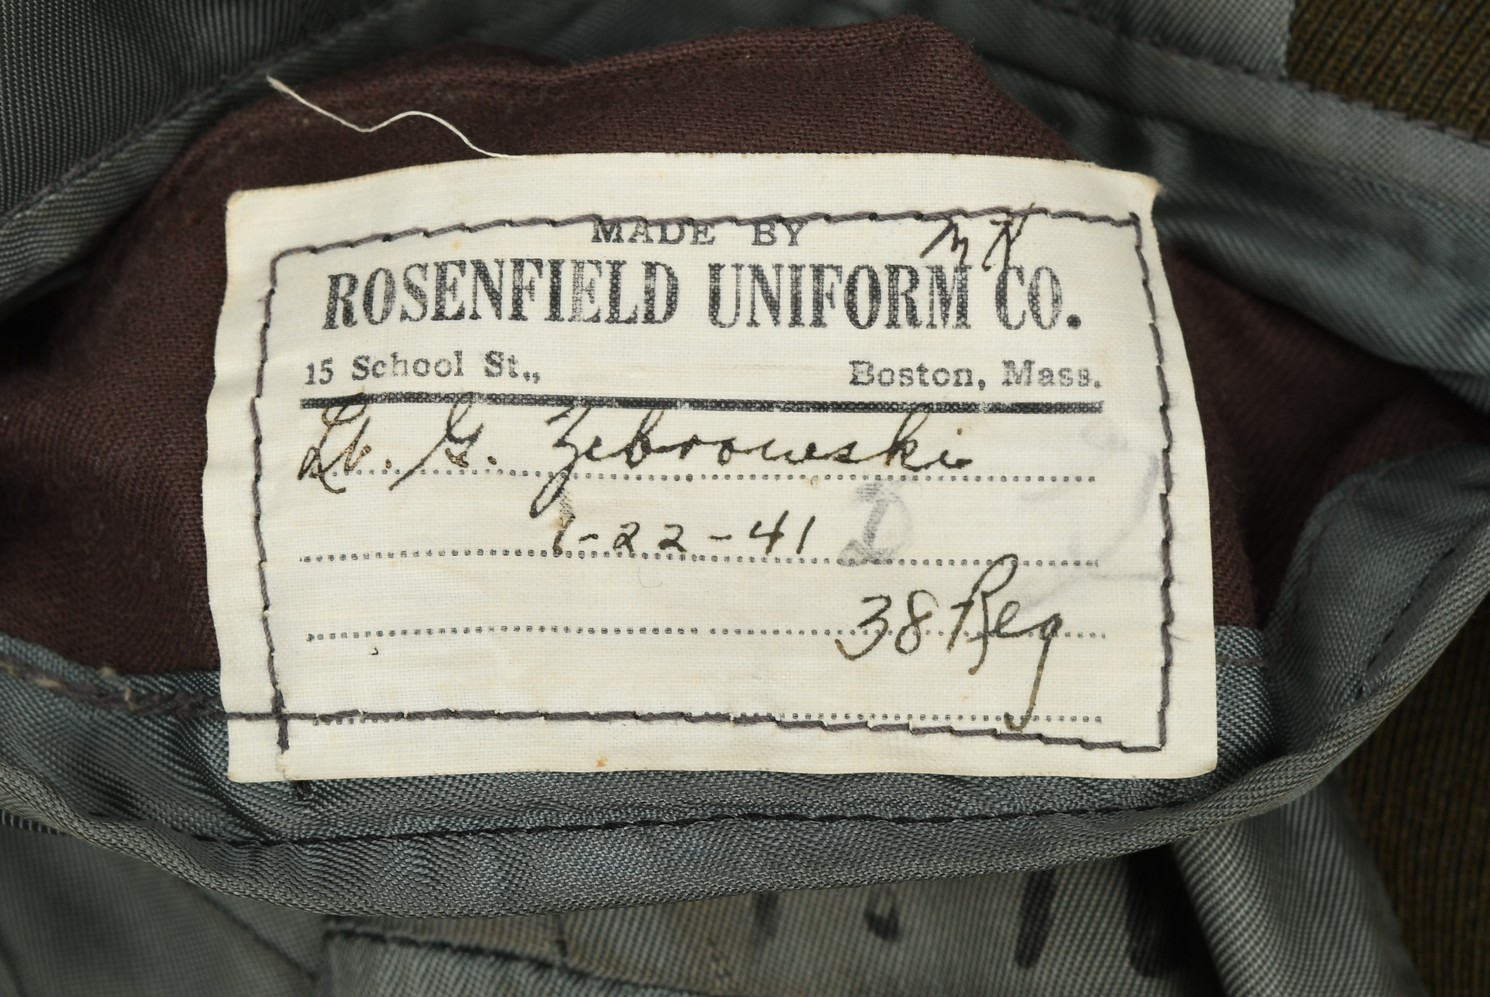 MADE BY
M K
ROSENFIELD UNIFORM CO.
15 School St., Boston, Mass.
Lt. G. Zebrowski
1-22-41 D
38 Reg